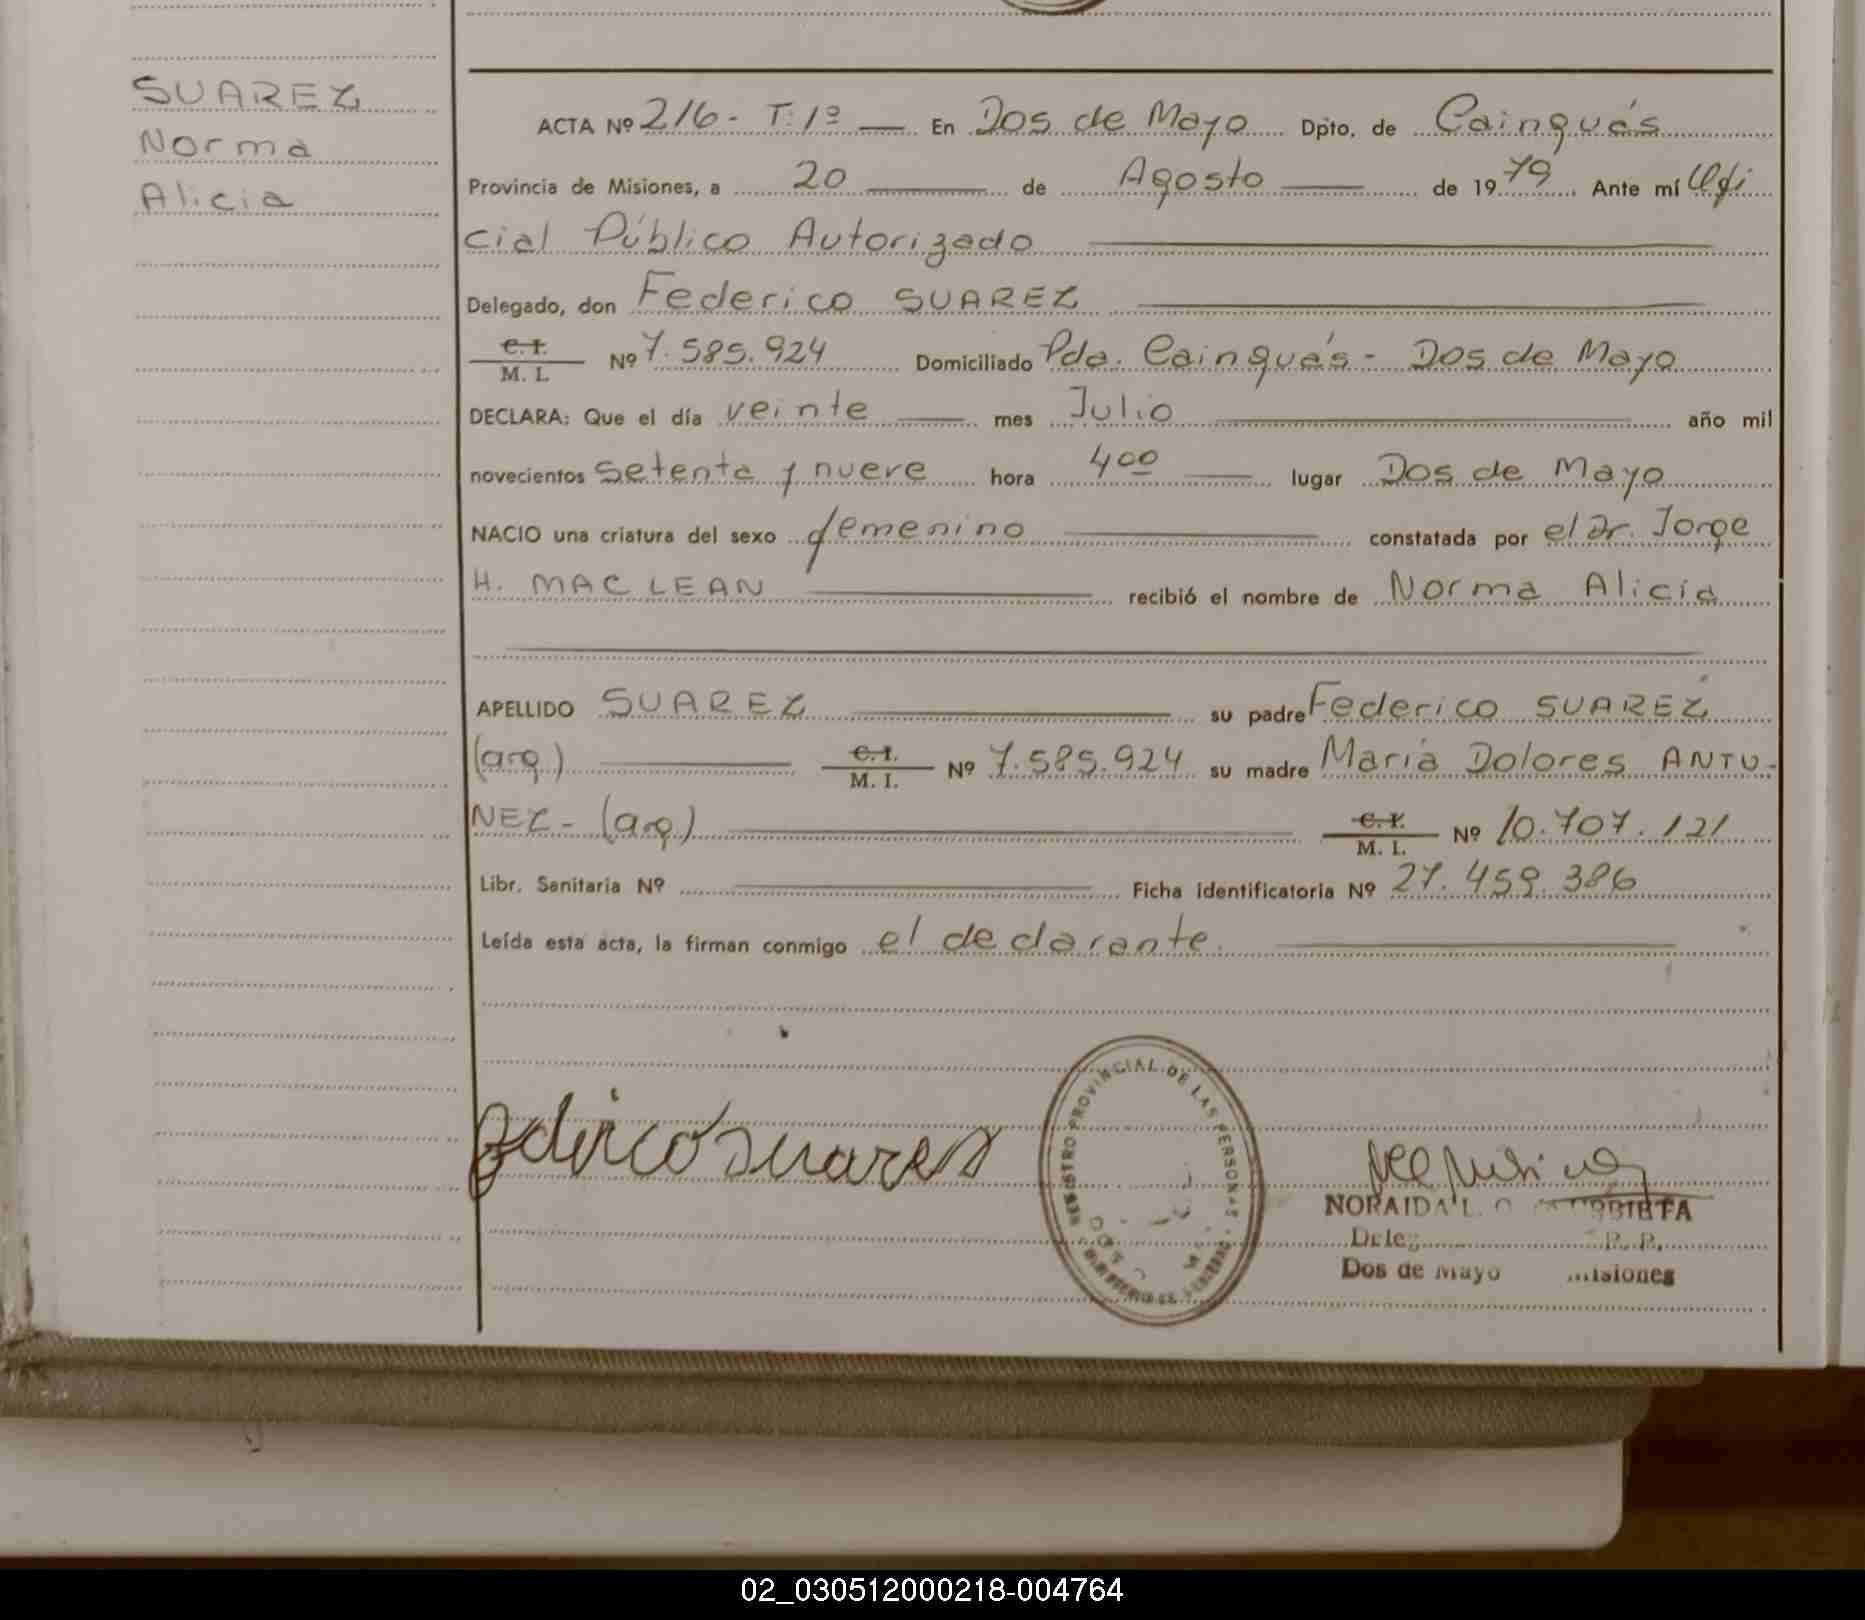 SUAREZ
Norma
Alicia
ACTA Nº 216 - T: 1º — En Dos de Mayo Dpto. de Cainguás
Provincia de Misiones, a 20 — de Agosto — de 1979 Ante mí Ofi
cial Público Autorizado
Delegado, don Federico SUAREZ
C. I. / M. I. Nº 7.585.924 Domiciliado Pda. Cainguás - Dos de Mayo
DECLARA: Que el día veinte — mes Julio — año mil
novecientos setenta y nueve hora 4 00 — lugar Dos de Mayo
NACIO una criatura del sexo femenino — constatada por el Dr. Jorge
H. MAC LEAN — recibió el nombre de Norma Alicia
APELLIDO SUAREZ — su padre Federico SUAREZ
(arg.) — C. I. / M. I. Nº 7.585.924 su madre María Dolores ANTU-
NEZ - (arg) — C. I. / M. I. Nº 10.707.121
Libr. Sanitaria Nº — Ficha identificatoria Nº 27.459.386
Leída esta acta, la firman conmigo el declarante.
REGISTRO PROVINCIAL DE LAS PERSONAS
DOS
NORAIDA L.
R. P.
Dos de Mayo Misiones
02_030512000218-004764